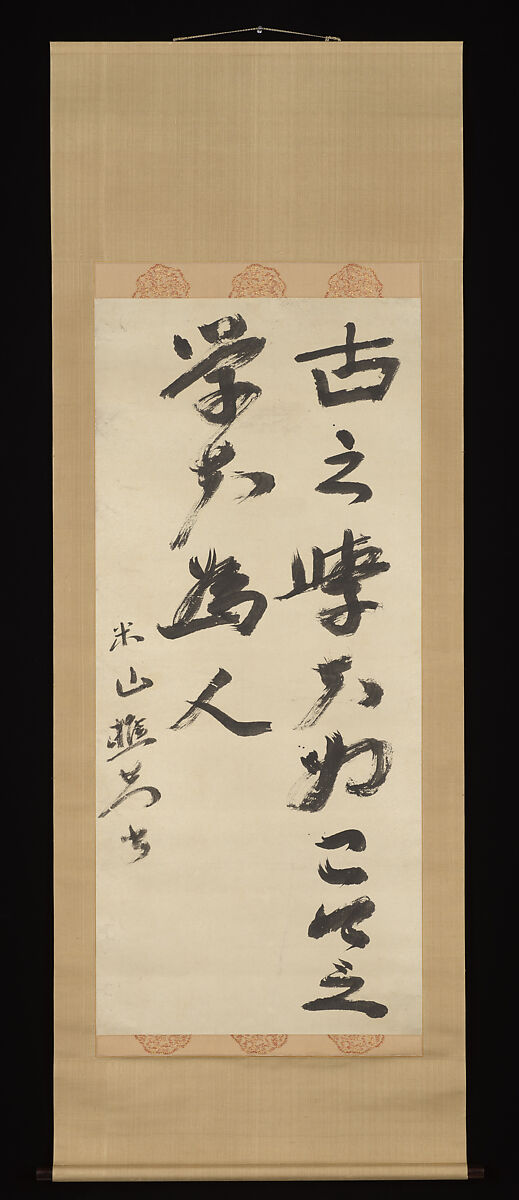 古之學者為己今之
学者為人
米山樵者書